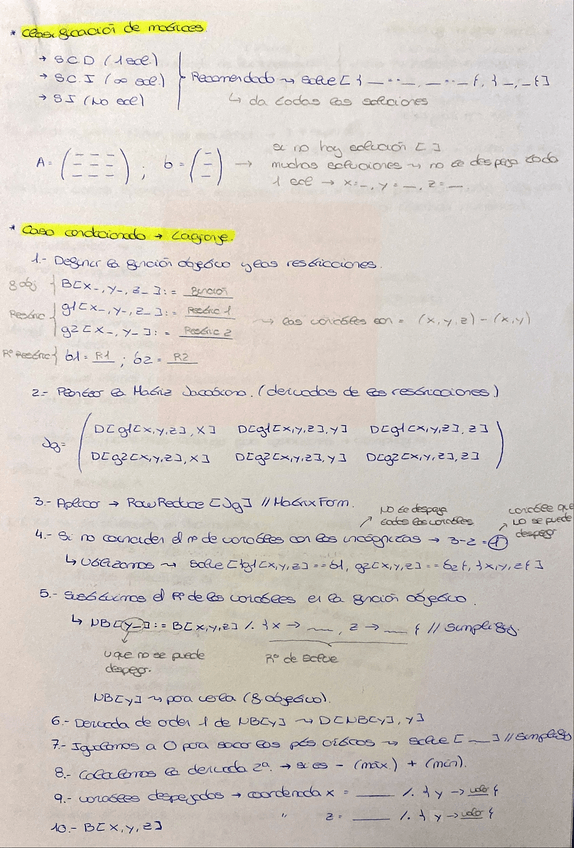 * Clasificación de matrices
→ SCD (1 sol)
→ SCI (∞ sol)
→ SI (No sol)
Recomendado ⇝ Solve [{ _ .. _, _ .. _ }, { _, _ }]
↳ da todas las soluciones
A = ( ) ; b = ( ) →
si no hay solución []
muchas soluciones ⇝ no se despeja todo
1 sol → x = _, y = _, z = _
* Caso condicionado → Lagrange.
1.- Definir la función objetivo y las restricciones.
B[x_, y_, z_] := función
g1[x_, y_, z_] := Restric 1
g2[x_, y_] := Restric 2
⇝ las variables son = (x,y,z) - (x,y)
Rº Restric { b1 = R1 ; b2 = R2
F obj
Restric
2.- Plantear la Matriz Jacobiana. (derivadas de las restricciones)
Jg =
D[g1[x,y,z], x] D[g1[x,y,z], y] D[g1[x,y,z], z]
D[g2[x,y,z], x] D[g2[x,y,z], y] D[g2[x,y,z], z]
3.- Aplicar → RowReduce [Jg] // MatrixForm.
No se despeja todas las variables
variable que no se puede despejar
4.- Si no coinciden el nº de variables con las incógnitas → 3-2 = 1
↳ Utilizamos ⇝ Solve [{g1[x,y,z] == b1, g2[x,y,z] == b2}, {x,y,z}]
5.- Sustituimos el Rº de las variables en la función objetivo.
↳ NB[y_] := B[x,y,z] /. {x → __, z → __} // Simplify.
y que no se puede despejar.
Rº de Solve
NB[y] ⇝ para verla (F objetivo).
6.- Derivada de orden 1 de NB[y] ⇝ D[NB[y], y]
7.- Igualamos a 0 para sacar los ptos críticos ⇝ Solve [ __ ] // Simplify
8.- Calculamos la derivada 2ª → si es - (máx) + (mín).
9.- Variables despejadas → coordenada x = ____ /. {y → valor}
" z = ____ /. {y → valor}
10.- B[x,y,z]